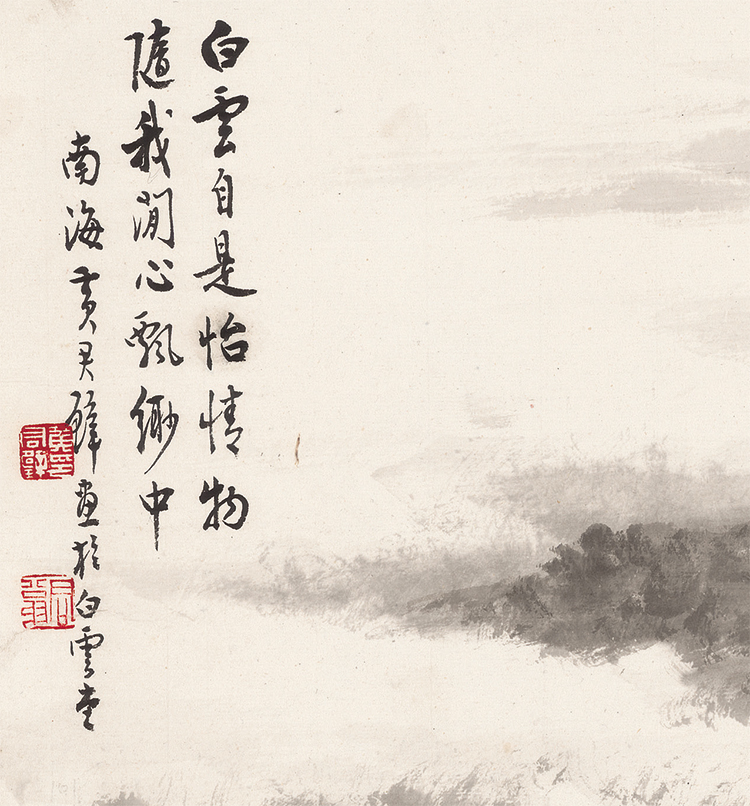 白雲自是怡情物
隨我閒心飄緲中
南海黃君璧畫於白雲堂